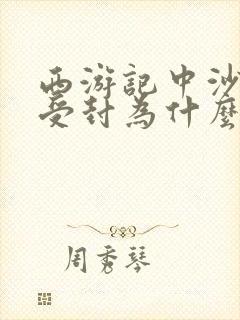 西游記中沙
受封為什麼
周秀琴